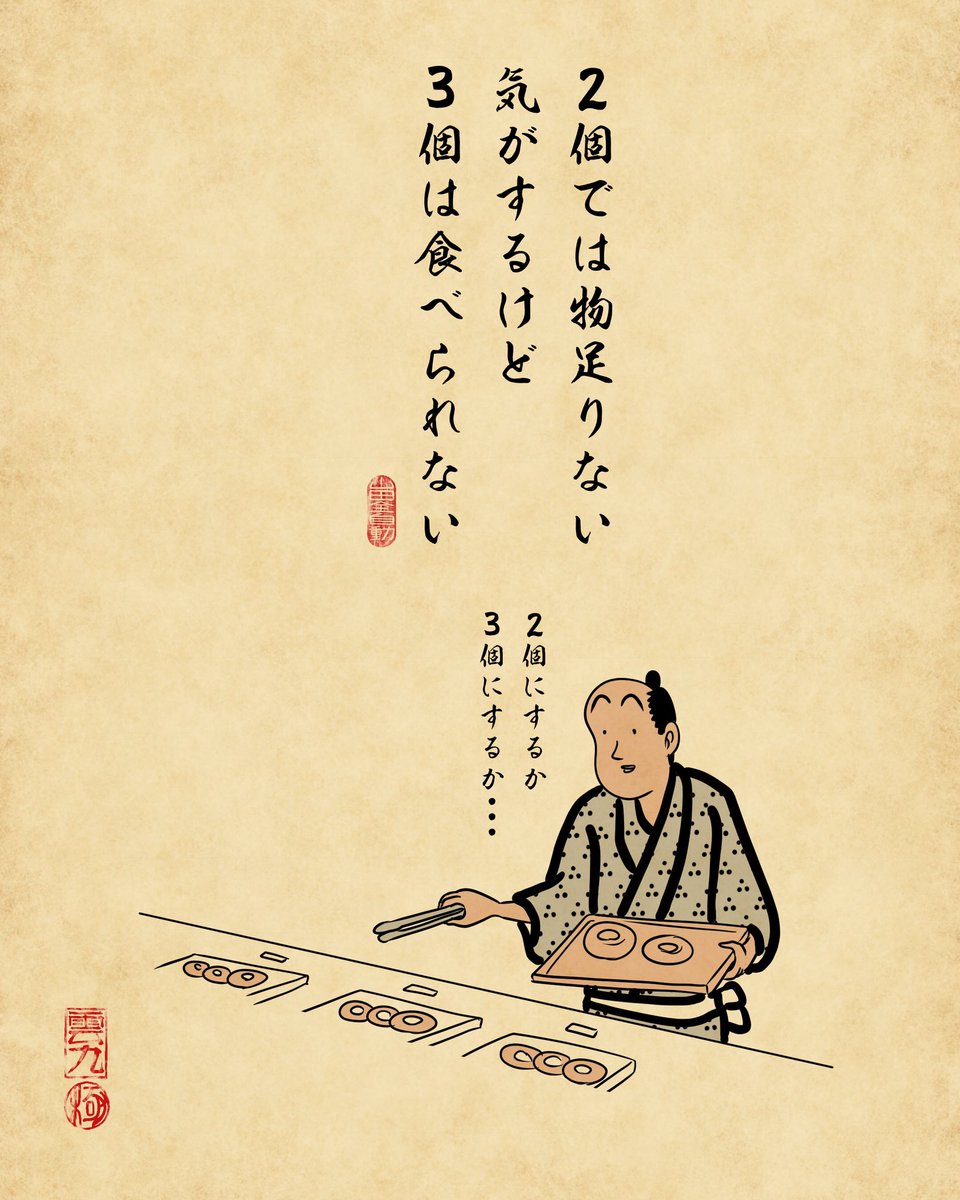 2個では物足りない
気がするけど
3個は食べられない
2個にするか
3個にするか・・・